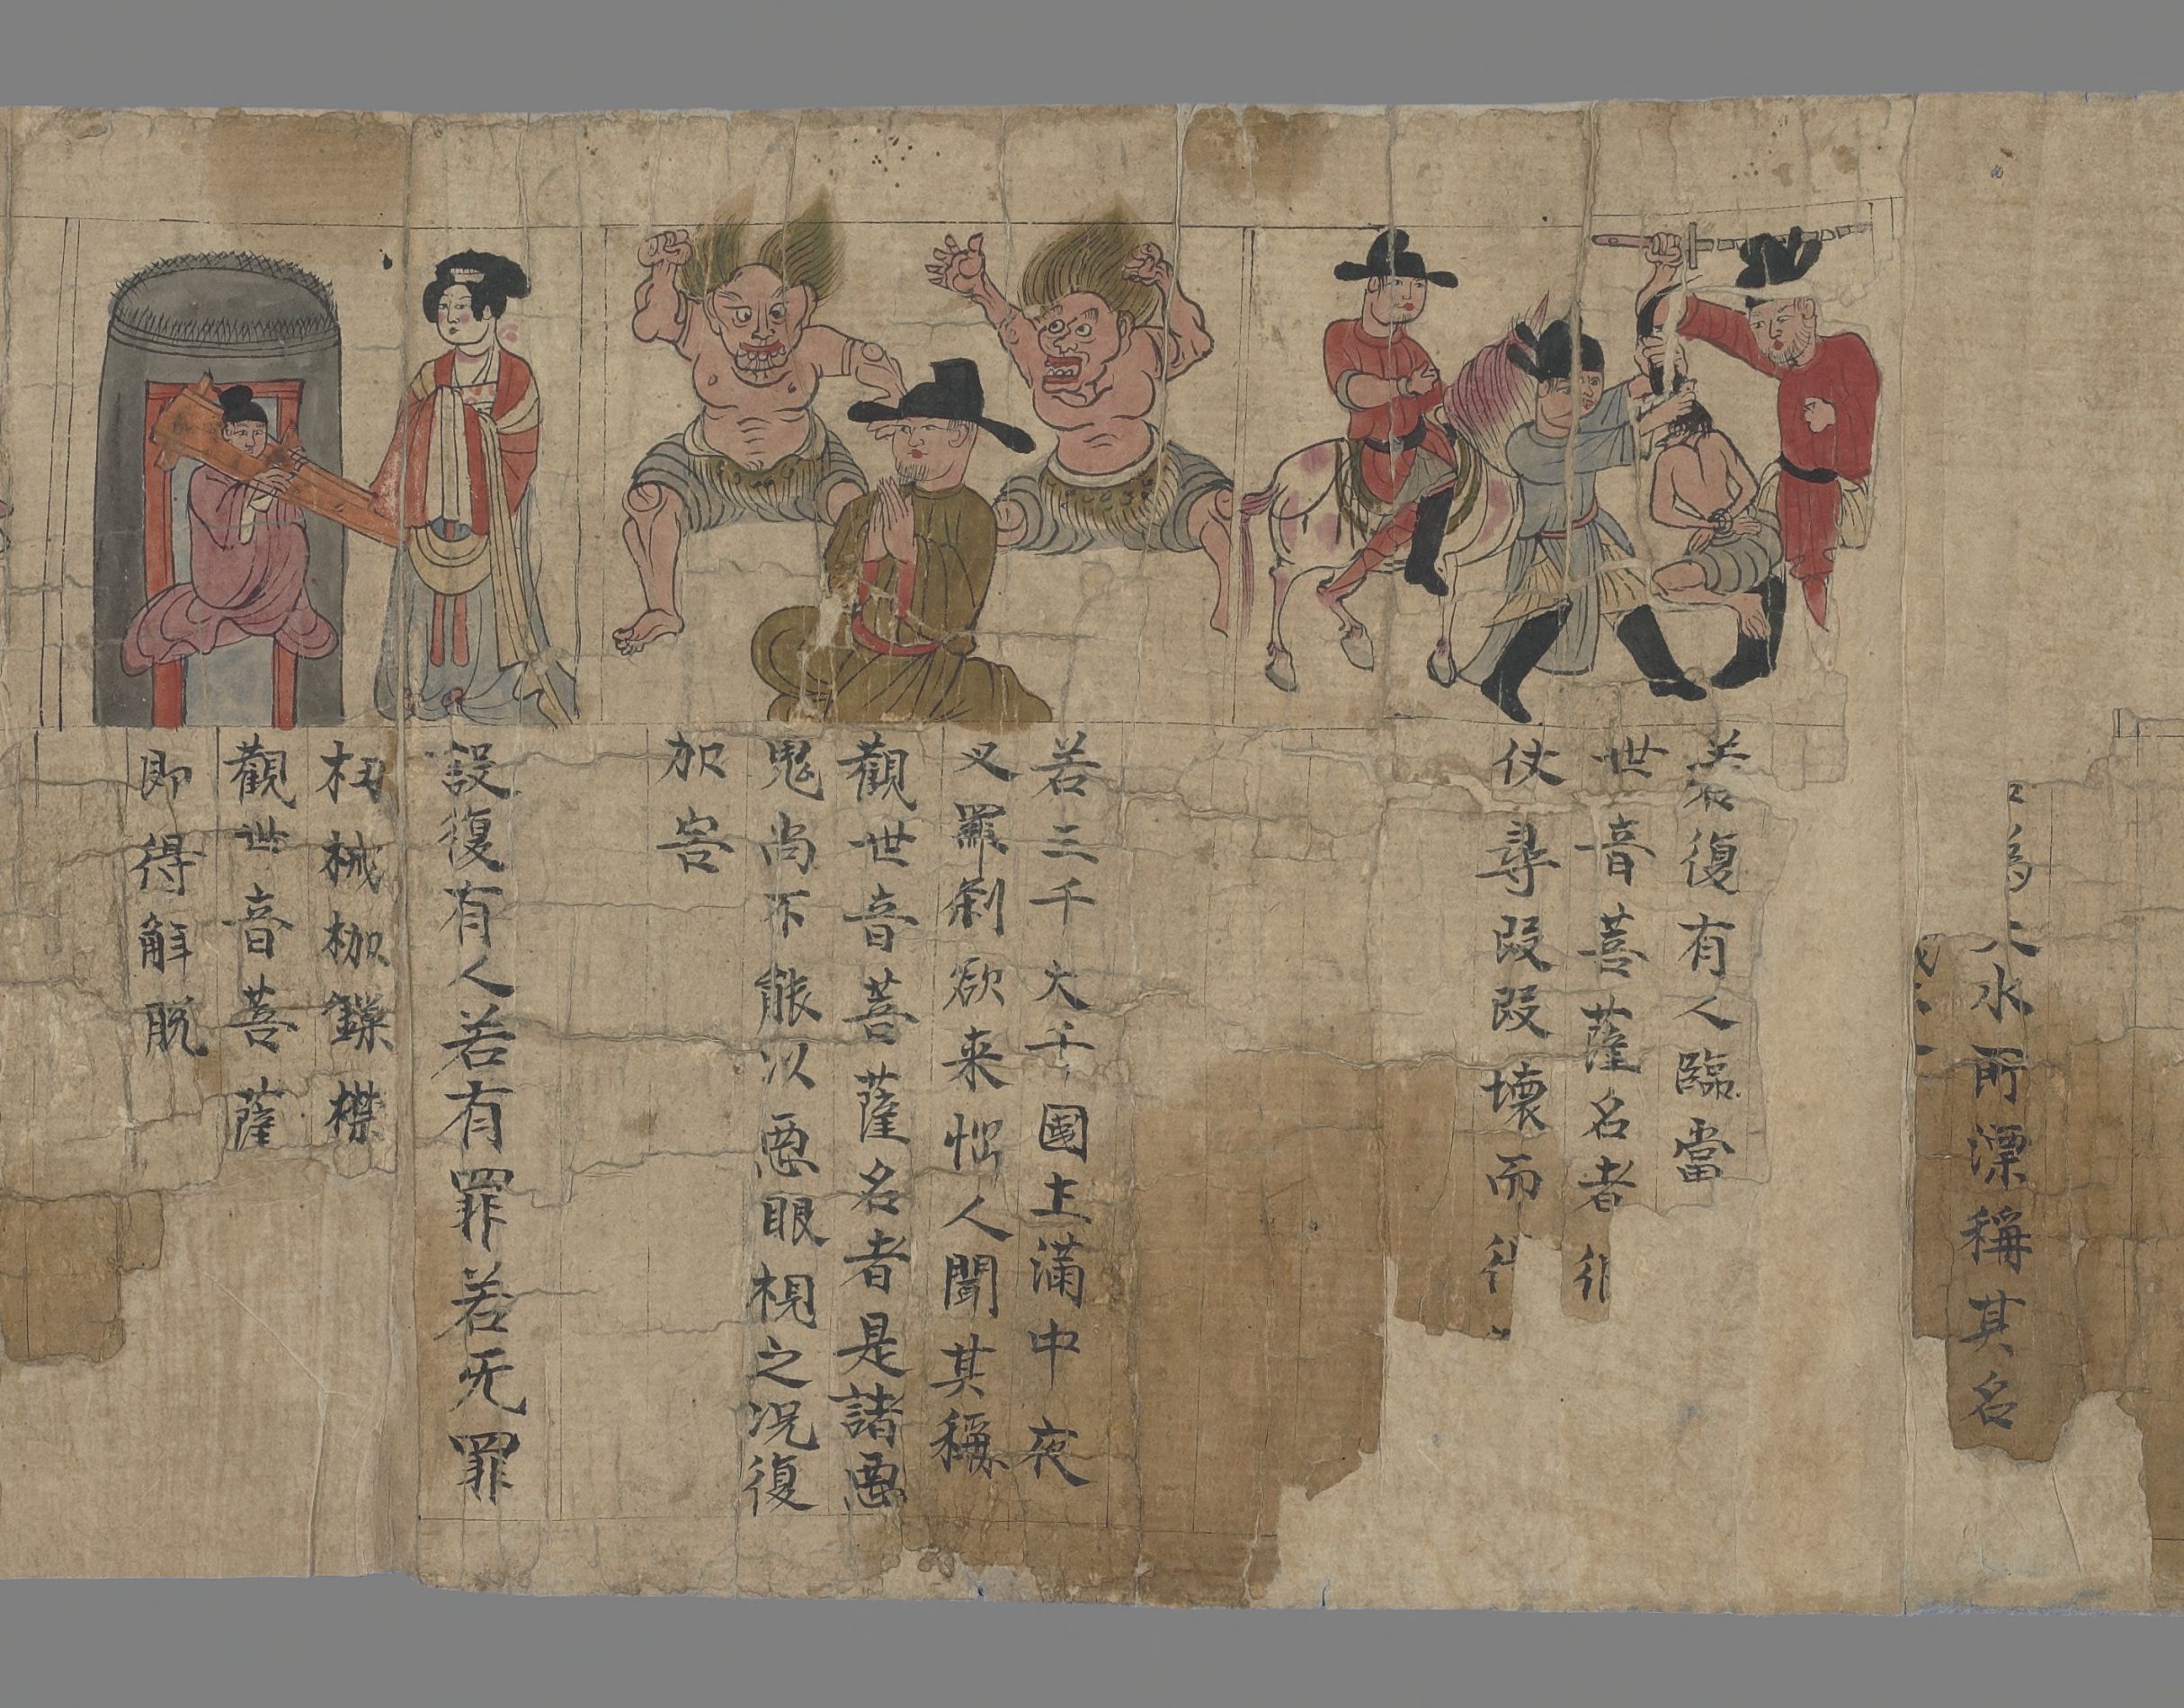 大水所漂稱其名
若復有人臨當
世音菩薩名者
仗尋段段壞而
若三千大千國土滿中夜
叉羅剎欲来惱人聞其稱
觀世音菩薩名者是諸惡
鬼尚不能以惡眼視之況復
加害
設復有人若有罪若无罪
杻械枷鏁檪
觀世音菩薩
即得解脫